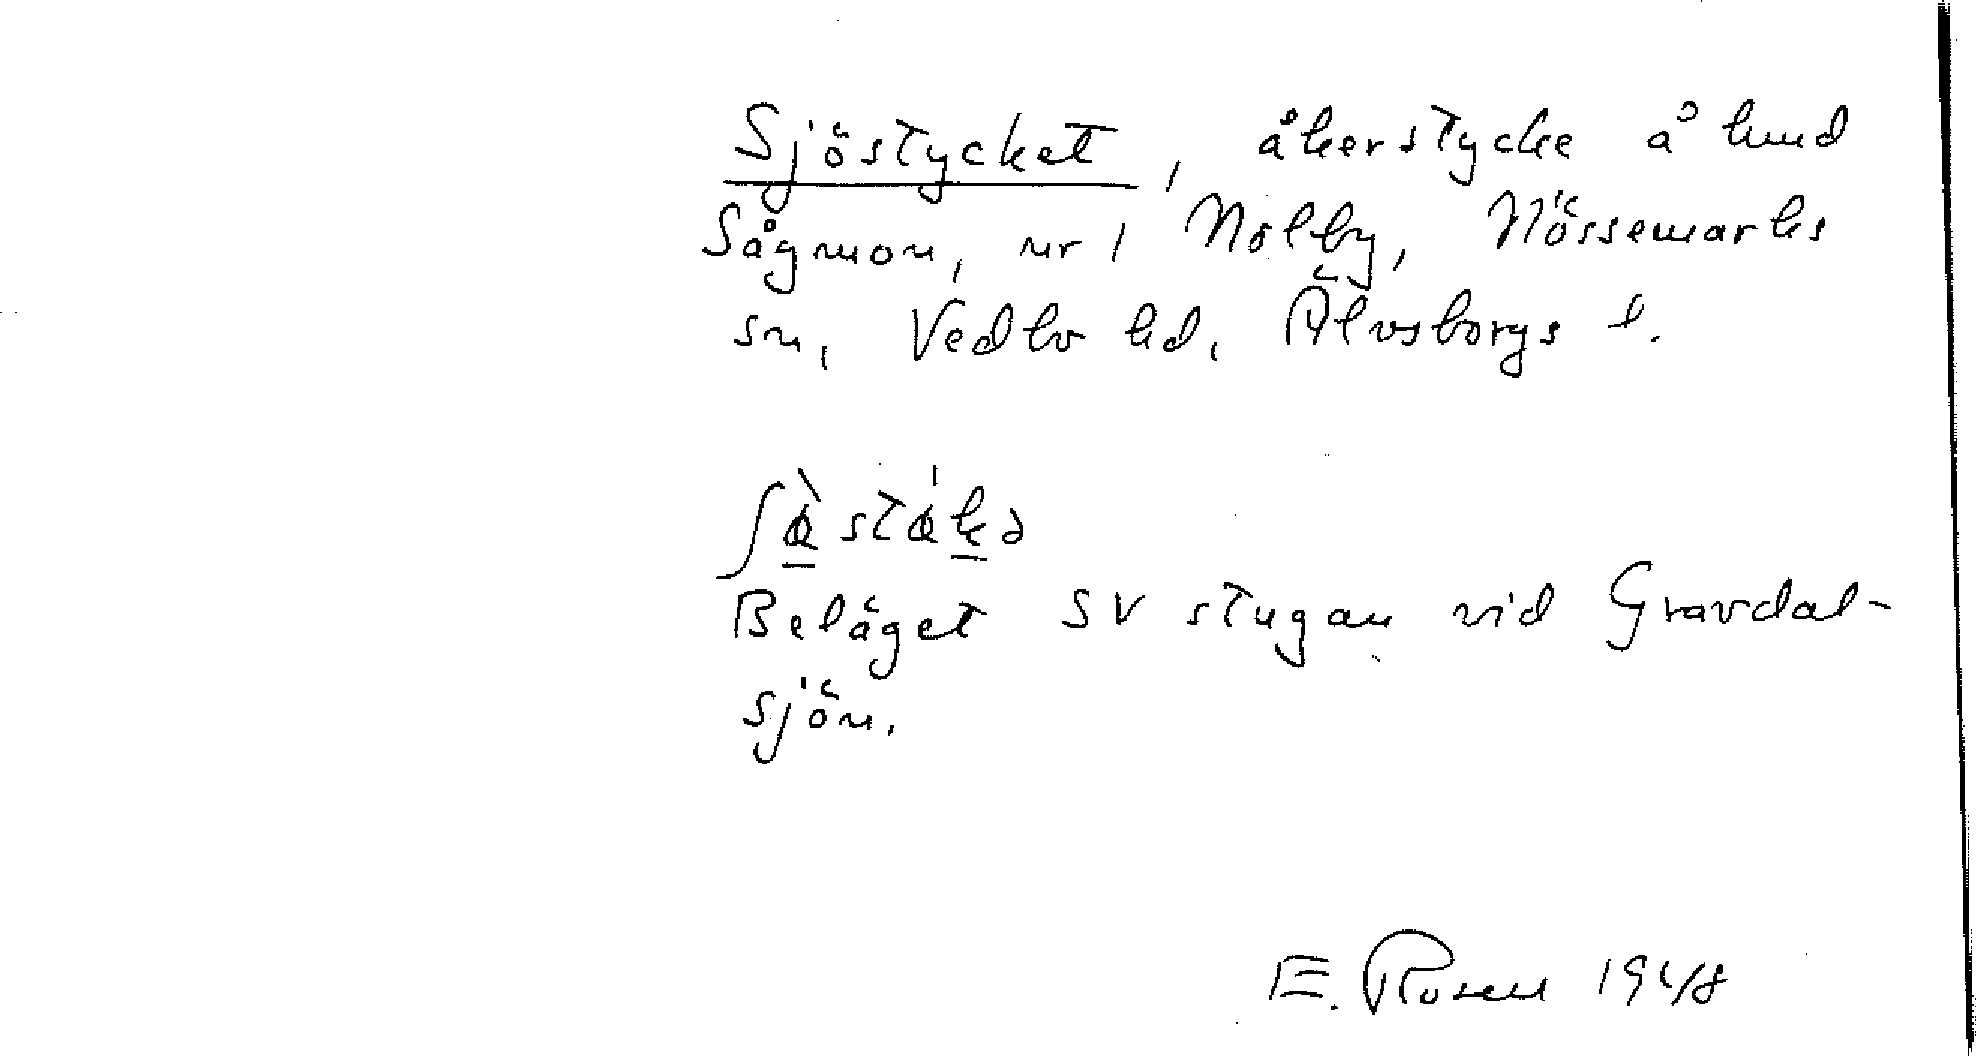 Sjöstycket, åkerstycke å hmd
Sågmon, nr 1 Nolby, Nössemarks
sn, Vedbo hd, Älvsborgs l.
Beläget SV stugan vid Gravdal-
sjön.
E. Rosen 1948